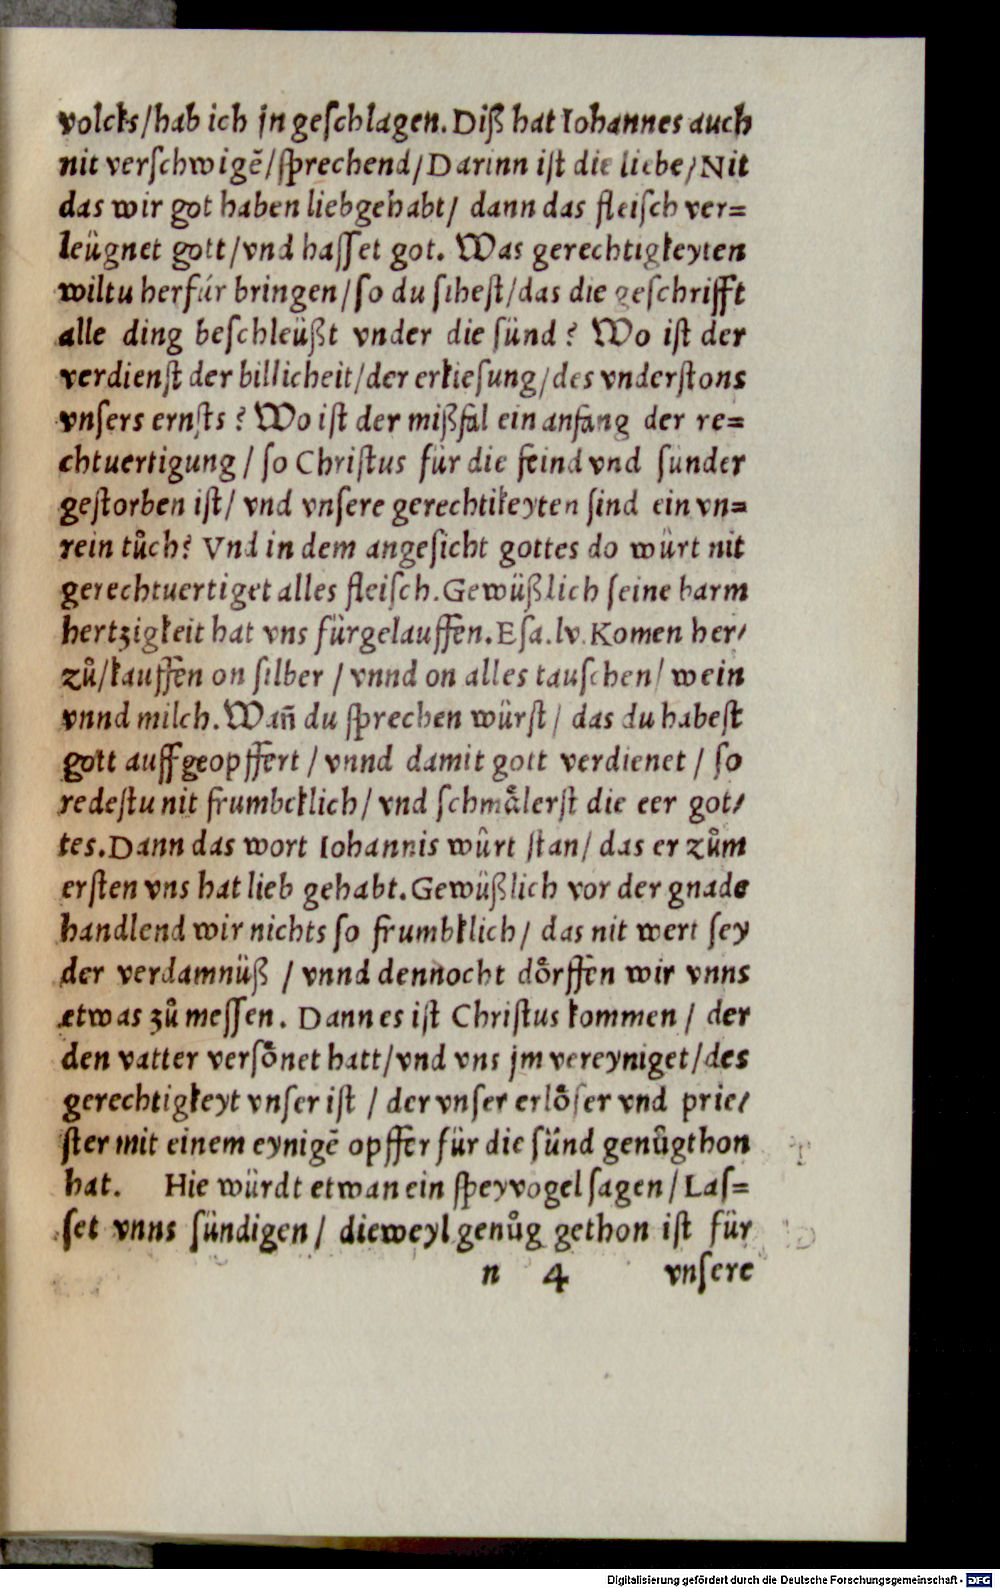 volcks/hab ich jn geſchlagen. Diß hat Iohannes auch
nit verſchwigẽ/ſprechend/Darinn iſt die liebe/Nit
das wir got haben liebgehabt/ dann das fleiſch ver=
leügnet gott/vnd haſſet got. Was gerechtigkeyten
wiltu herfúr bringen/ſo du ſiheſt/das die geſchrifft
alle ding beſchleüßt vnder die ſünd? Wo iſt der
verdienſt der billicheit/der erkieſung/des vnderſtons
vnſers ernſts? Wo iſt der mißfal ein anfang der re=
chtuertigung/ ſo Chriſtus für die feind vnd ſunder
geſtorben iſt/ vnd vnſere gerechtikeyten ſind ein vn=
rein tůch? Vnd in dem angeſicht gottes do würt nit
gerechtuertiget alles fleiſch. Gewüßlich ſeine barm
hertzigkeit hat vns fürgelauffen. Eſa. lv. Komen her/
zů/kauffen on ſilber / vnnd on alles tauſchen/ wein
vnnd milch. Wañ du ſprechen würſt/ das du habeſt
gott auffgeopffert / vnnd damit gott verdienet / ſo
redeſtu nit frumbcklich/ vnd ſchmaͤlerſt die eer got/
tes. Dann das wort Iohannis wůrt ſtan/ das er zům
erſten vns hat lieb gehabt. Gewüßlich vor der gnade
handlend wir nichts ſo frumbklich/ das nit wert ſey
der verdamnüß / vnnd dennocht doͤrffen wir vnns
etwas zů meſſen. Dann es iſt Chriſtus kommen / der
den vatter verſoͤnet hatt/vnd vns jm vereyniget/des
gerechtigkeyt vnſer iſt / der vnſer erloͤſer vnd prie/
ſter mit einem eynigẽ opffer für die ſünd genůgthon
hat. Hie würdt etwan ein ſpeyvogel ſagen/ Laſ=
ſet vnns ſündigen/ dieweyl genůg gethon iſt für
n 4 vnſere
Digitalisierung gefördert durch die Deutsche Forschungsgemeinschaft - DFG